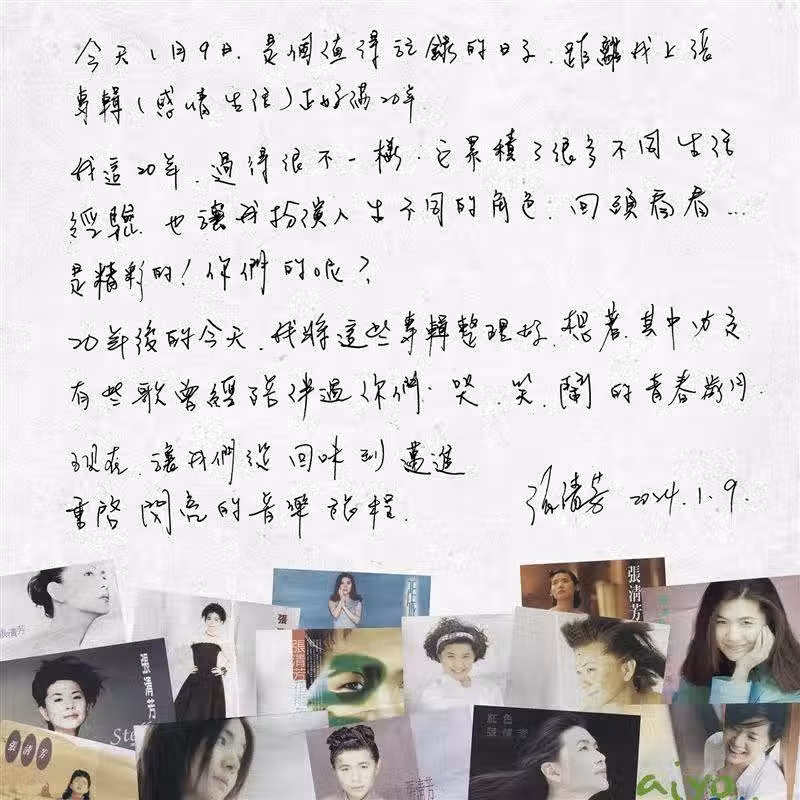 今天1月9日.是個值得記錄的日子.距離我上張
專輯(感情生活)正好滿20年.
我這20年.過得很不一樣.它累積了很多不同生活
經驗.也讓我扮演人生不同的角色.回頭看看...
是精彩的!你們的呢?
20年後的今天.我將這些專輯整理好.想著.其中必定
有些歌曾經陪伴過你們.哭.笑.鬧的青春歲月.
現在.讓我們從回味到邁進
重啓閃亮的音樂旅程.
張清芳 2024.1.9.
張清芳
張清芳
張清芳
張清芳
張清芳
Ste
張清芳
紅色
張清芳
張清芳
aiyo